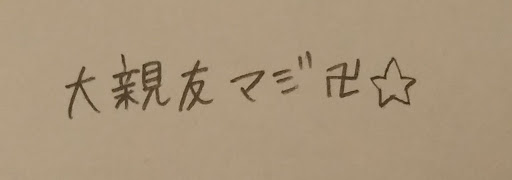 大親友マジ卍☆